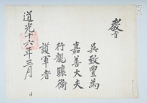 敎旨
吳致豊爲
嘉善大夫
行龍驤衛
護軍者
道光十六年三月